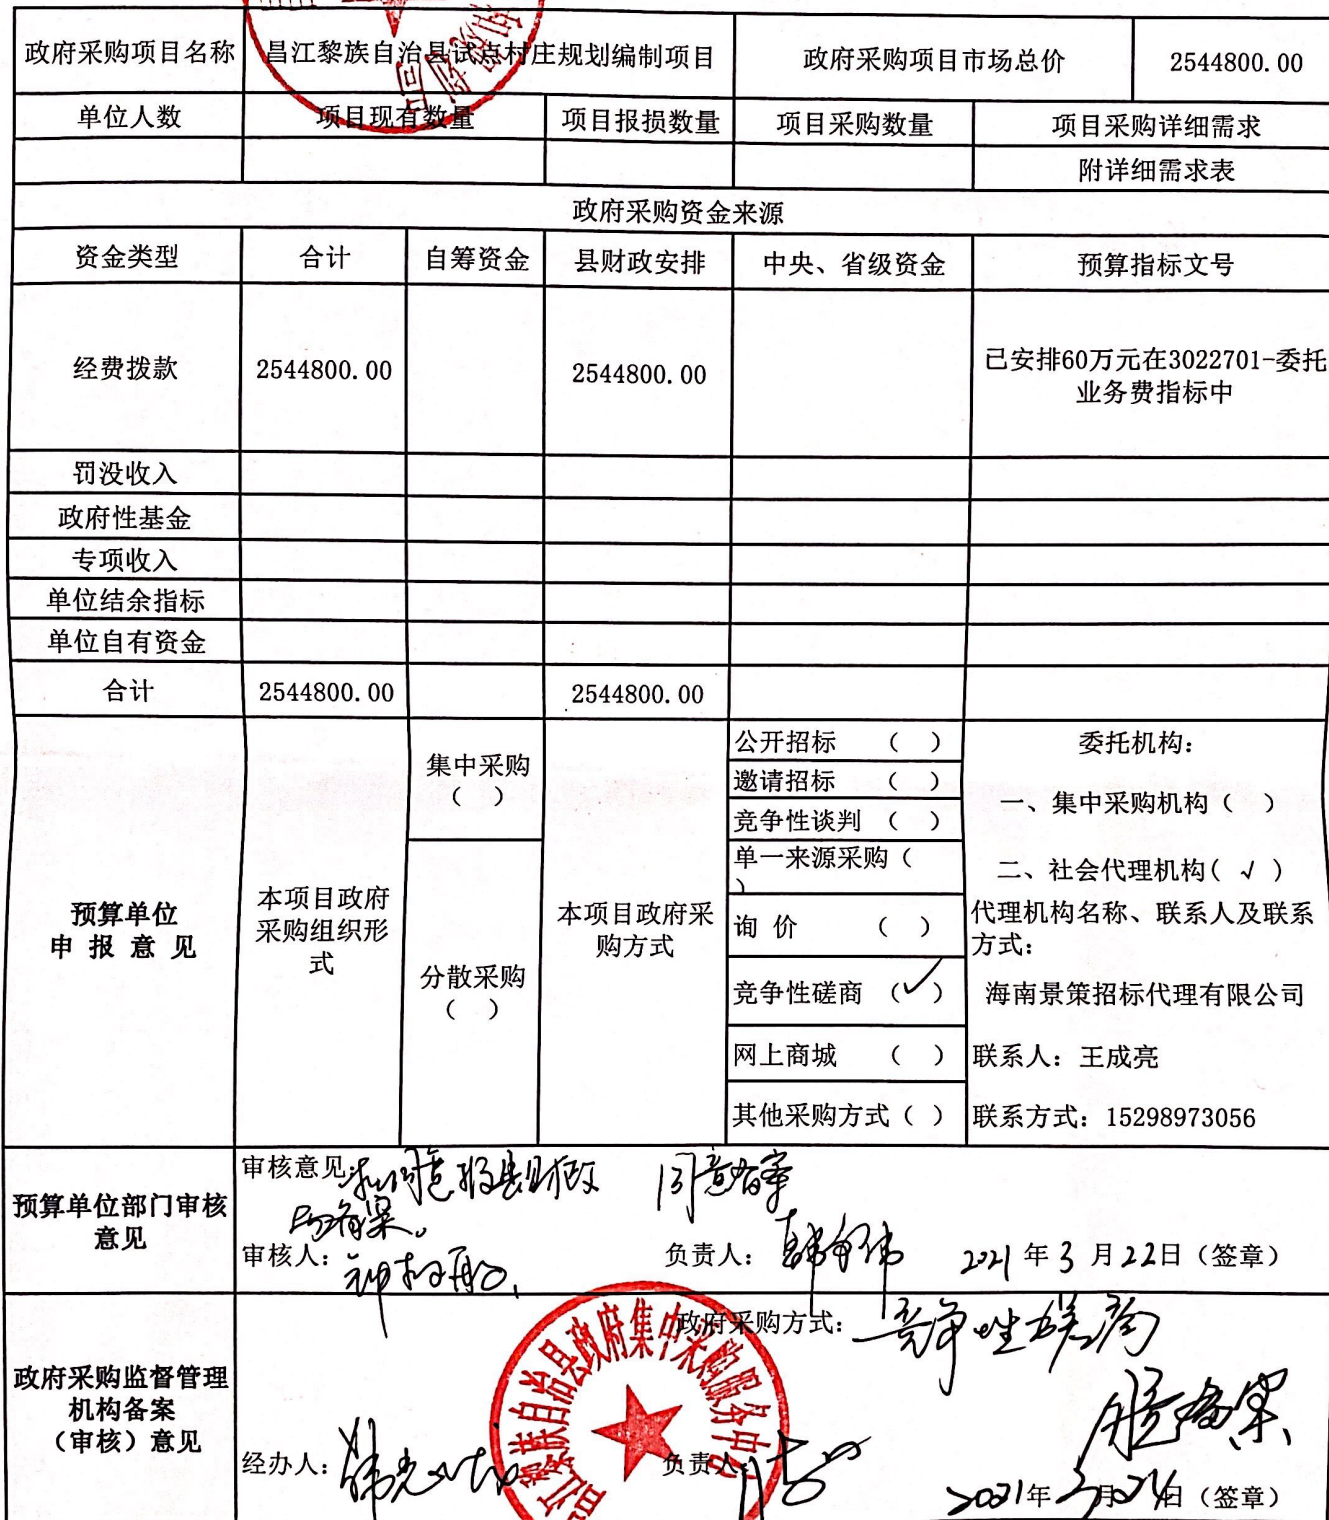 政府采购项目名称 昌江黎族自治县试点村庄规划编制项目 政府采购项目市场总价 2544800.00
单位人数 项目现有数量 项目报损数量 项目采购数量 项目采购详细需求
附详细需求表
政府采购资金来源
资金类型 合计 自筹资金 县财政安排 中央、省级资金 预算指标文号
经费拨款 2544800.00 2544800.00 已安排60万元在3022701-委托
业务费指标中
罚没收入
政府性基金
专项收入
单位结余指标
单位自有资金
合计 2544800.00 2544800.00
预算单位
申 报 意 见
本项目政府
采购组织形
式
集中采购
（ ）
分散采购
（ ）
本项目政府采
购方式
公开招标 （ ）
邀请招标 （ ）
竞争性谈判 （ ）
单一来源采购（
）
询 价 （ ）
竞争性磋商 （✓）
网上商城 （ ）
其他采购方式（ ）
委托机构：
一、集中采购机构（ ）
二、社会代理机构（ √ ）
代理机构名称、联系人及联系
方式：
海南景策招标代理有限公司
联系人：王成亮
联系方式：15298973056
预算单位部门审核
意见
审核意见： 同意报县财政 同意备案
局备案。
审核人： 负责人： 2021 年 3 月 22日（签章）
政府采购监督管理
机构备案
（审核）意见
政府采购方式：竞争性磋商
同意备案
经办人： 负责人：
2021年3月24日（签章）
昌江黎族自治县政府集中采购服务中心